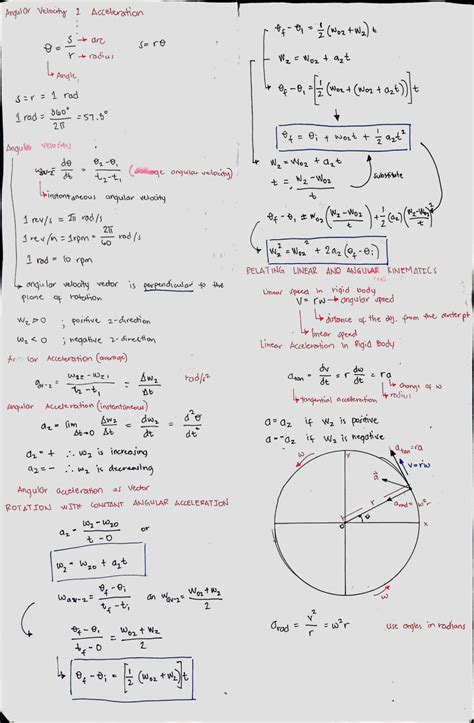 Angular Velocity & Acceleration
θ = s/r → arc → radius
s = rθ
↳ Angle
s = r = 1 rad
1 rad = 360°/2π = 57.3°
Angular Velocity
ωav-z = dθ/dt = θ2 - θ1 / t2 - t1 (average angular velocity)
↳ instantaneous angular velocity
1 rev/s = 2π rad/s
1 rev/m = 1 rpm = 2π/60 rad/s
1 rad = 10 rpm
↳ angular velocity vector is perpendicular to the
plane of rotation
ωz > 0 ; positive z-direction
ωz < 0 ; negative z-direction
Angular Acceleration (average)
αav-z = ω2z - ω1z / t2 - t1 = Δωz/Δt rad/s²
Angular Acceleration (instantaneous)
αz = lim Δt→0 Δωz/Δt = dωz/dt = d²θ/dt²
αz = + ∴ ωz is increasing
αz = - ∴ ωz is decreasing
Angular acceleration as Vector
ROTATION WITH CONSTANT ANGULAR ACCELERATION
αz = ωz - ωz0 / t - 0 or
ωz = ωz0 + αzt
ωav-z = θf - θi / tf - ti
ωav-z = ω0z + ωz / 2
θf - θi / tf - 0 = ω0z + ωz / 2
θf - θi = [1/2 (ω0z + ωz)] t
θf - θi = 1/2 (ω0z + ωz) t
ωz = ω0z + αzt
θf - θi = [1/2 (ω0z + (ω0z + αzt))] t
θf = θi + ω0zt + 1/2 αzt²
ωz = ω0z + αzt
t = ωz - ω0z / αz
substitute
θf - θi = ω0z (ωz - ω0z / αz) + 1/2 (αz) (ωz - ω0z / αz)²
ωz² = ω0z² + 2αz (θf - θi)
RELATING LINEAR AND ANGULAR KINEMATICS
Linear speed in rigid body
v = rω → angular speed
↳ distance of the obj. from the center pt
↳ linear speed
Linear Acceleration in Rigid Body
atan = dv/dt = r dω/dt = rα
↳ change of ω
↳ radius
↳ tangential acceleration
α = αz if ωz is positive
α = -αz if ωz is negative
ω
Y
atan = rα
v = rω
a
r
arad = ω²r
θ
O
x
ω
arad = v²/r = ω²r
use angles in radians